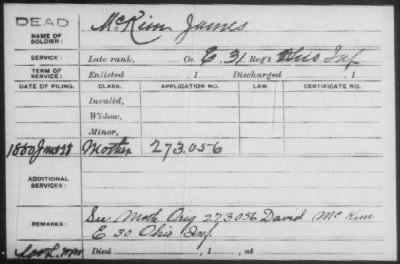 DEAD
NAME OF SOLDIER: McKim James
SERVICE: Late rank, Co. E. 31 Reg't Ohio Inf
TERM OF SERVICE: Enlisted , 1 Discharged , 1
DATE OF FILING. CLASS. APPLICATION NO. LAW. CERTIFICATE NO.
Invalid,
Widow,
Minor,
1880 Mother 273.056
ADDITIONAL SERVICES:
REMARKS: See Moth. Orig 273056 David McKim
E 30 Ohio Inf.
Died , 1 , at